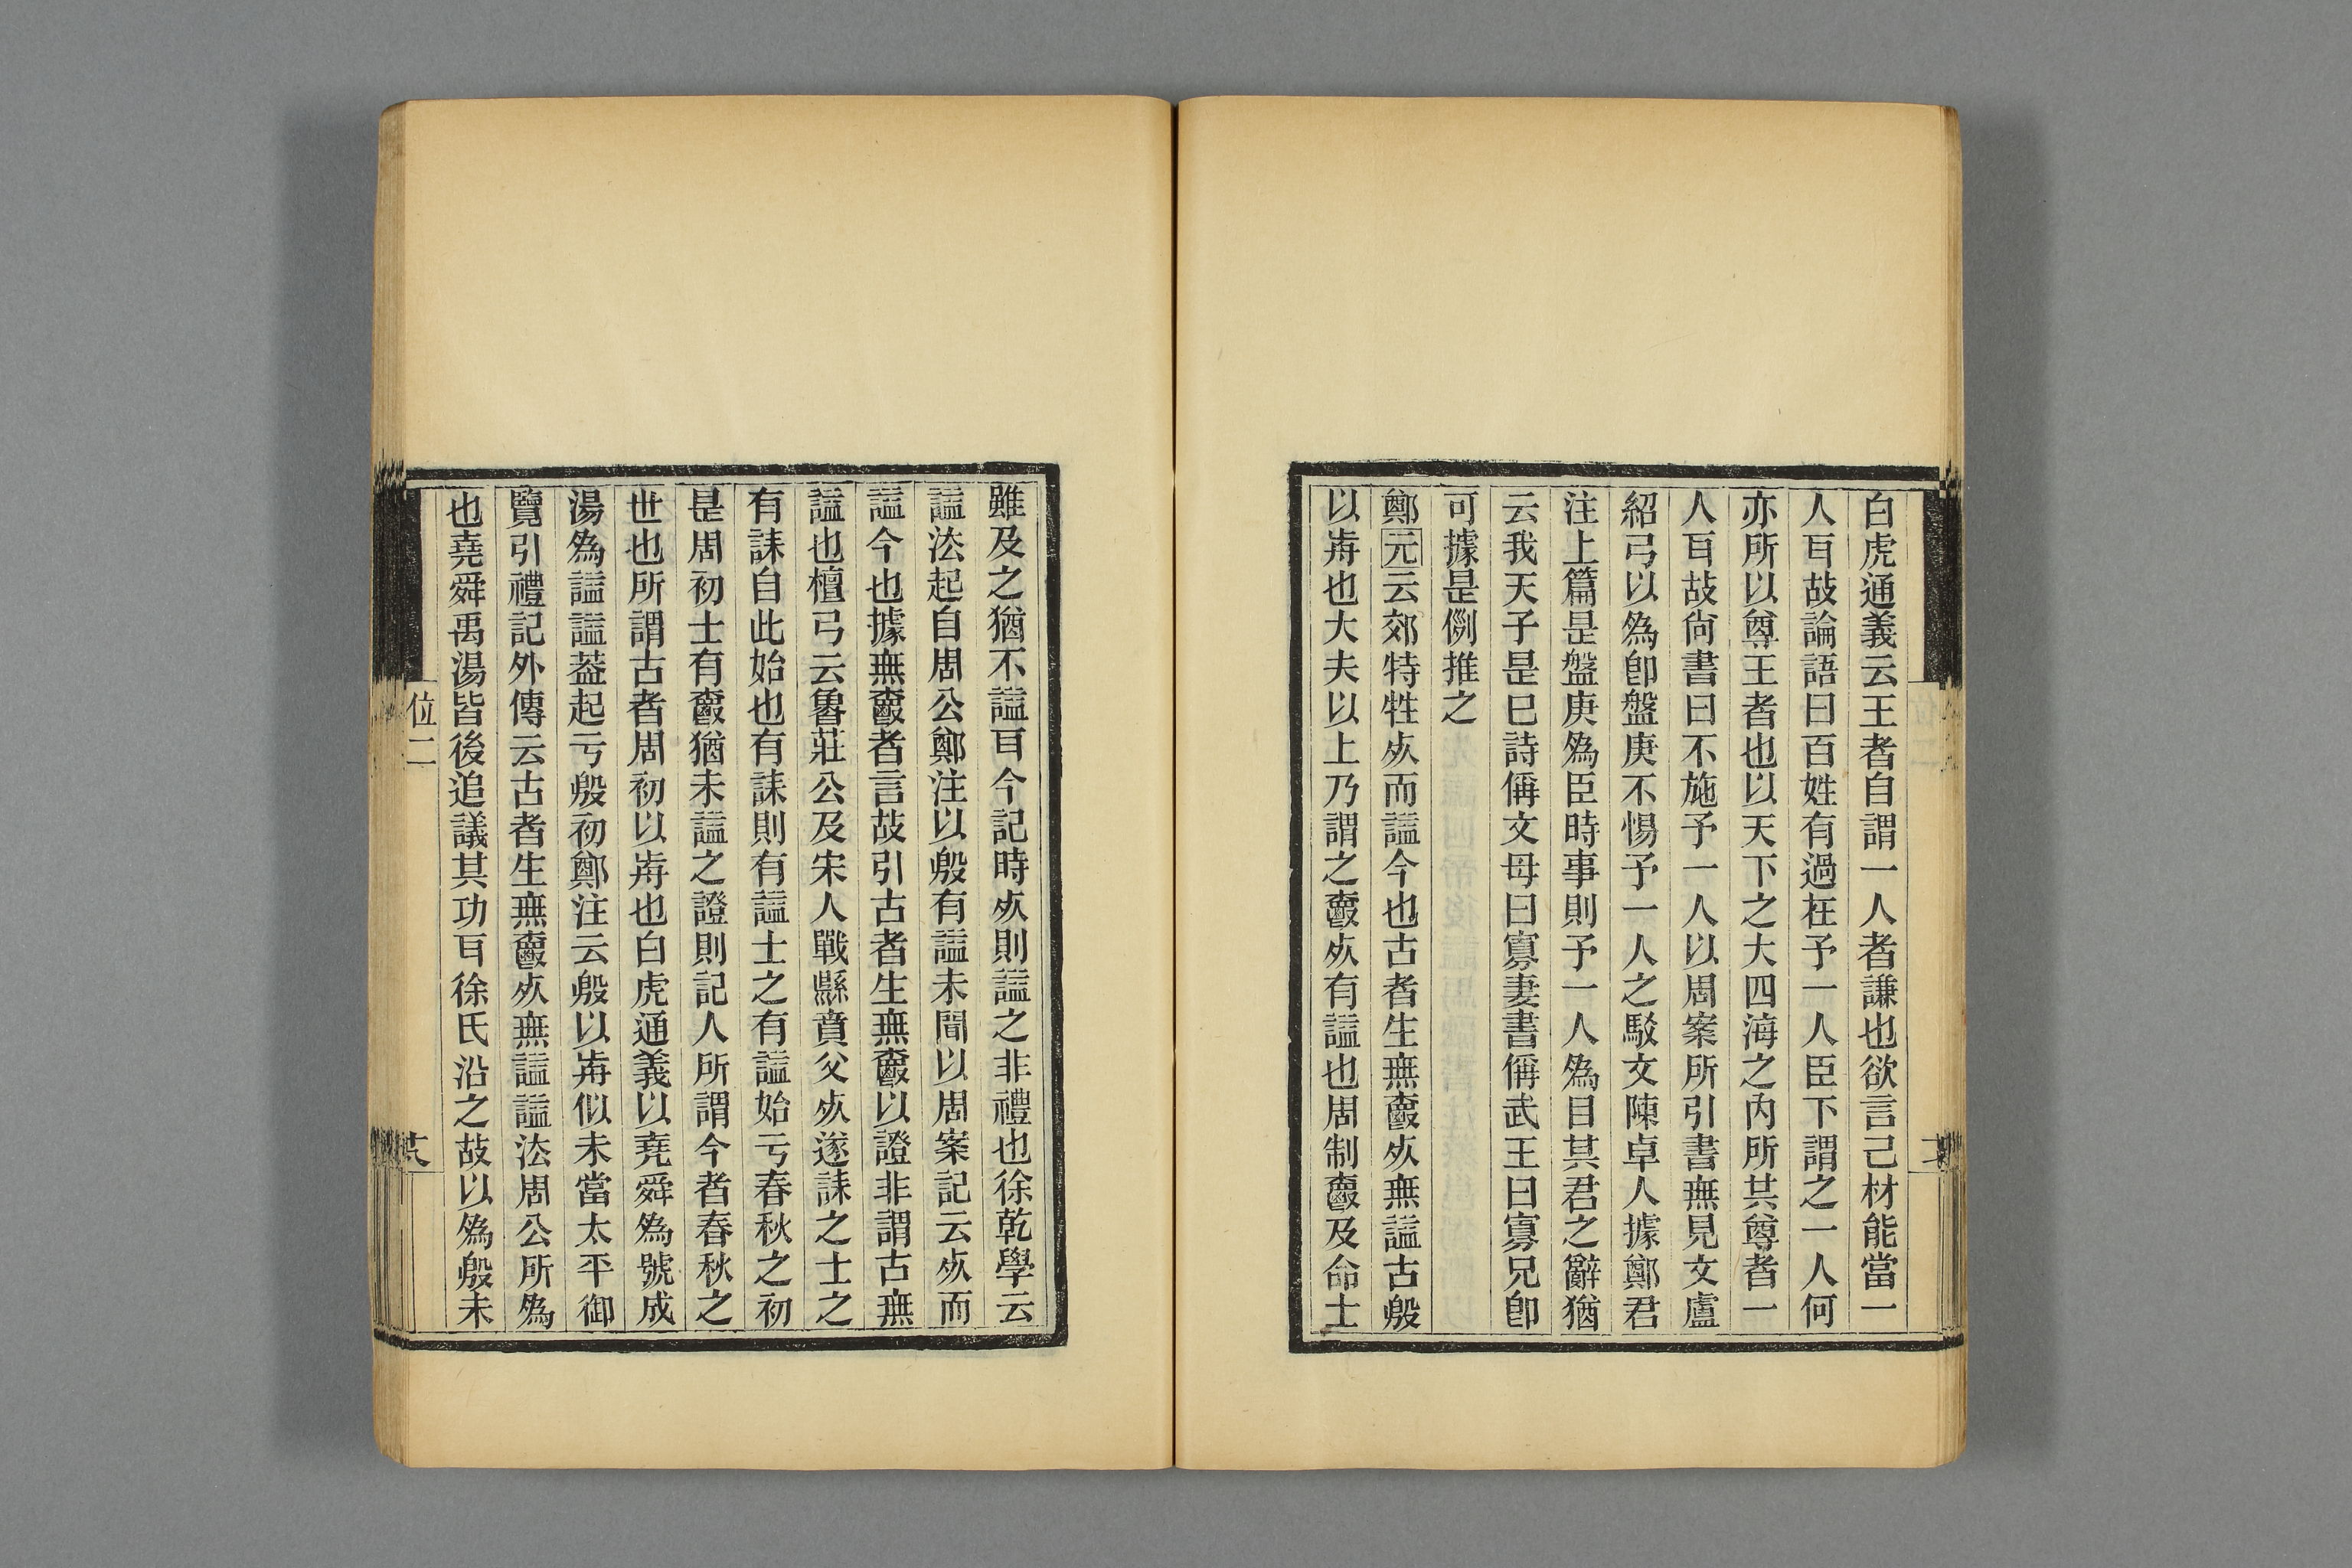 白虎通義云王者自謂一人者謙也欲言己材能當一
人耳故論語曰百姓有過在予一人臣下謂之一人何
亦所以尊王者也以天下之大四海之內所共尊者一
人耳故尙書曰不施予一人以周案所引書無見文盧
紹弓以為卽盤庚不惕予一人之駁文陳卓人據鄭君
注上篇是盤庚為臣時事則予一人為目其君之辭猶
云我天子是巳詩偁文母曰寡妻書偁武王曰寡兄卽
可據是例推之
鄭元云郊特牲𣦸而諡今也古者生無爵𣦸無諡古殷
以歬也大夫以上乃謂之爵𣦸有諡也周制爵及命士
雖及之猶不諡耳今記時𣦸則諡之非禮也徐乾學云
諡法起自周公鄭注以殷有諡未聞以周案記云𣦸而
諡今也據無爵者言故引古者生無爵以證非謂古無
諡也檀弓云魯莊公及宋人戰縣賁父𣦸遂誄之士之
有誄自此始也有誄則有諡士之有諡始亏春秋之初
是周初士有爵猶未諡之證則記人所謂今者春秋之
世也所謂古者周初以歬也白虎通義以堯舜為號成
湯為諡諡葢起亏殷初鄭注云殷以歬似未當太平御
覽引禮記外傳云古者生無爵𣦸無諡諡法周公所為
也堯舜禹湯皆後追議其功耳徐氏沿之故以為殷未
位二